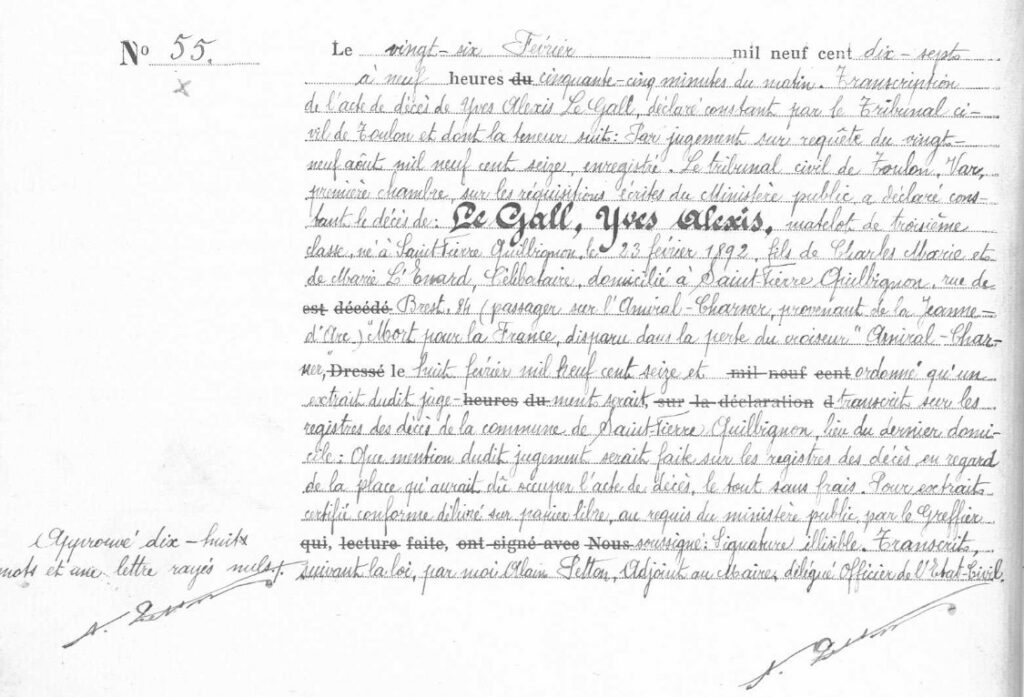 Nº 55. Le vingt-six Février mil neuf cent dix-sept
à neuf heures du cinquante-cinq minutes du matin. Transcription
de l'acte de décès de Yves Alexis Le Gall, déclaré constant par le Tribunal ci-
vil de Toulon et dont la teneur suit: Par jugement sur requête du vingt-
neuf août mil neuf cent seize, enregistré. Le tribunal civil de Toulon, Var,
première chambre, sur les réquisitions écrites du Ministère public a déclaré cons-
tant le décès de: Le Gall, Yves Alexis, matelot de troisième
classe, né à Saint-Pierre Quilbignon, le 23 février 1892, fils de Charles Marie et
de Marie L'Enard, Célibataire, domicilié à Saint-Pierre Quilbignon, rue de
est décédé Brest, 84 (passager sur l'Amiral-Charner, provenant de la Jeanne-
d'Arc) "Mort pour la France, disparu dans la perte du croiseur "Amiral-Char-
ner", Dressé le huit février mil neuf cent seize et mil neuf cent ordonné qu'un
extrait dudit juge- heures du ment serait, sur la déclaration d transcrit sur les
registres des décès de la commune de Saint-Pierre Quilbignon, lieu du dernier domi-
cile: Que mention dudit jugement serait faite sur les registres des décès en regard
de la place qu'aurait dû occuper l'acte de décès, le tout sans frais. Pour extrait
certifié conforme délivré sur papier libre, au requis du ministère public, par le Greffier
qui, lecture faite, ont signé avec Nous soussigné: Signature illisible. Transcrit,
suivant la loi, par moi Alain Petton, Adjoint au Maire, délégué Officier de l'Etat-Civil.
Approuvé dix-huit
mots et une lettre rayés nuls.
A. Petton
A. Petton